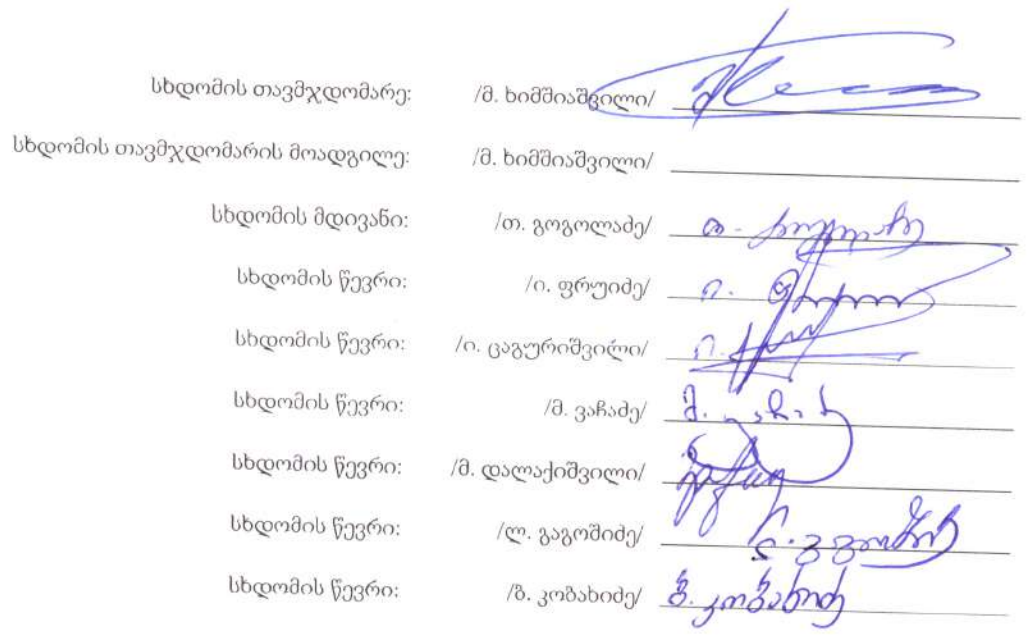 სხდომის თავმჯდომარე: /მ. ხიმშიაშვილი/
სხდომის თავმჯდომარის მოადგილე: /მ. ხიმშიაშვილი/
სხდომის მდივანი: /თ. გოგოლაძე/ თ. გოგოლაძე
სხდომის წევრი: /ი. ფრუიძე/ ი.
სხდომის წევრი: /ი. ცაგურიშვილი/ ი.
სხდომის წევრი: /მ. ვაჩაძე/ მ.
სხდომის წევრი: /მ. დალაქიშვილი/
სხდომის წევრი: /ლ. გაგოშიძე/
სხდომის წევრი: /ზ. კობახიძე/ ზ. კობახიძე